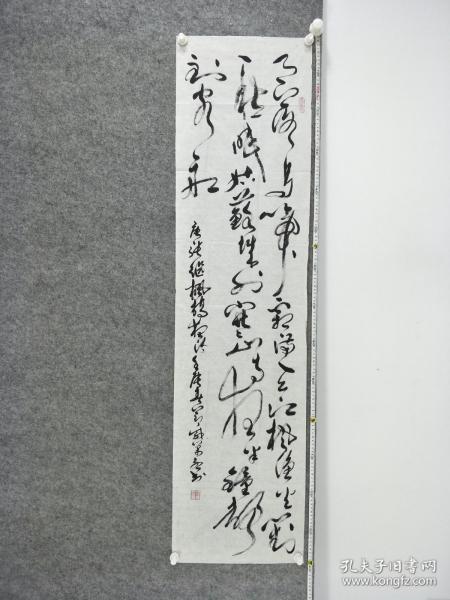 月落乌啼霜满天江枫渔火对
愁眠姑苏城外寒山寺夜半钟声
到客船
唐张继枫桥夜泊
孔夫子旧书网
www.kongfz.com